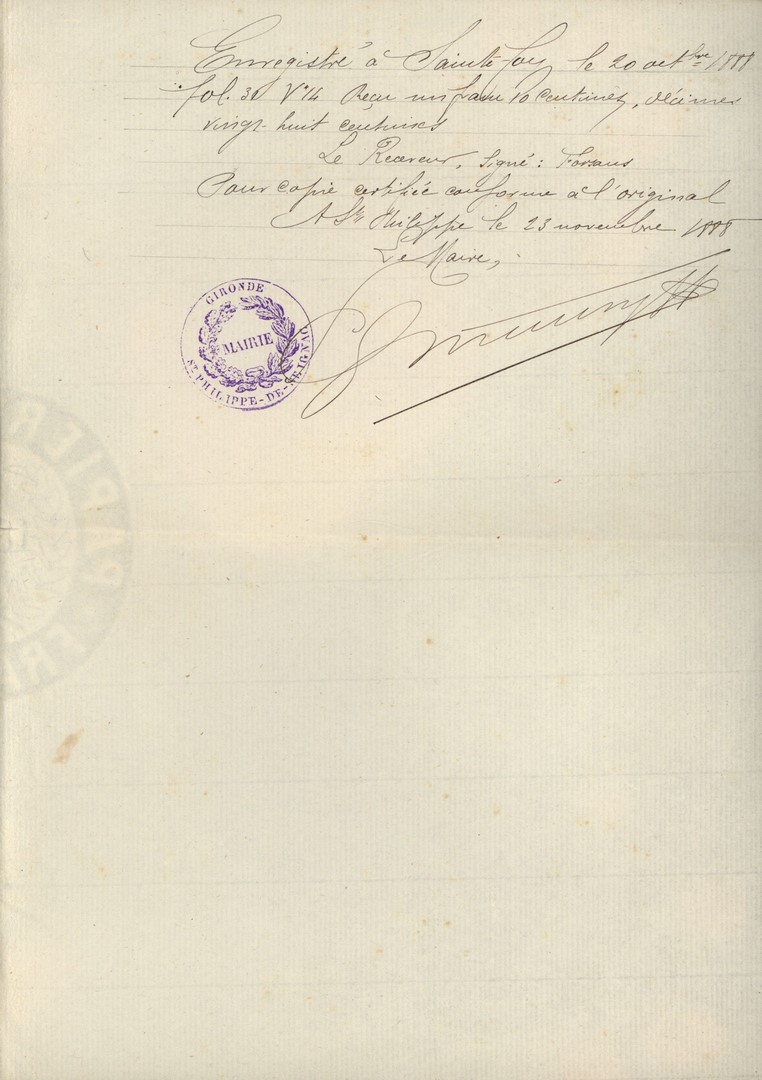 Enregistré à Sainte-foy le 20 octbre 1888
fol. 30 V° 14 Reçu un franc 10 centimes, décimes
vingt-huit centimes
Le Receveur, Signé :
Pour copie certifiée conforme à l'original
A St Philippe le 23 novembre 1888
Le Maire,
GIRONDE
MAIRIE
ST PHILIPPE-DE-SEIGNAC
PAPIER